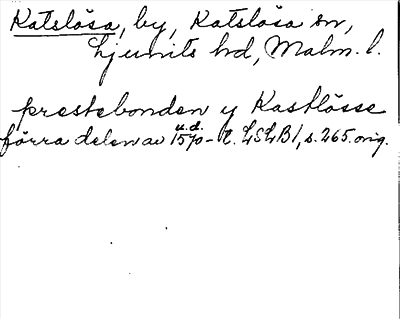 Katslösa, by, Katslösa sn,
Ljunits hd, Malm. l.
prestebonden y Kastlösse
u.d.
förra delen av 1570-t. LSLB1, s. 265. orig.